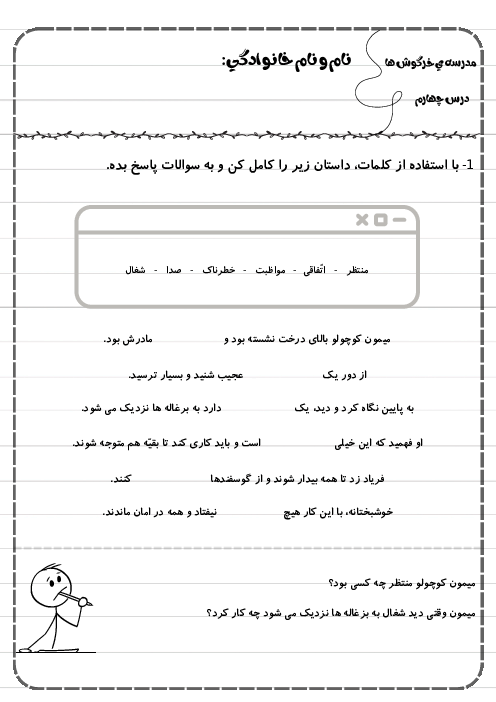 مدرسه‌ي خرگوش ها
نام و نام خانوادگي:
درس چهارم
1- با استفاده از کلمات، داستان زیر را کامل کن و به سوالات پاسخ بده.
منتظر - اتّفاقی - مواظبت - خطرناک - صدا - شغال
میمون کوچولو بالای درخت نشسته بود و مادرش بود.
از دور یک عجیب شنید و بسیار ترسید.
به پایین نگاه کرد و دید، یک دارد به برغاله ها نزدیک می شود.
او فهمید که این خیلی است و باید کاری کند تا بقیّه هم متوجه شوند.
فریاد زد تا همه بیدار شوند و از گوسفندها کنند.
خوشبختانه، با این کار هیچ نیفتاد و همه در امان ماندند.
میمون کوچولو منتظر چه کسی بود؟
میمون وقتی دید شغال به بزغاله ها نزدیک می شود چه کار کرد؟